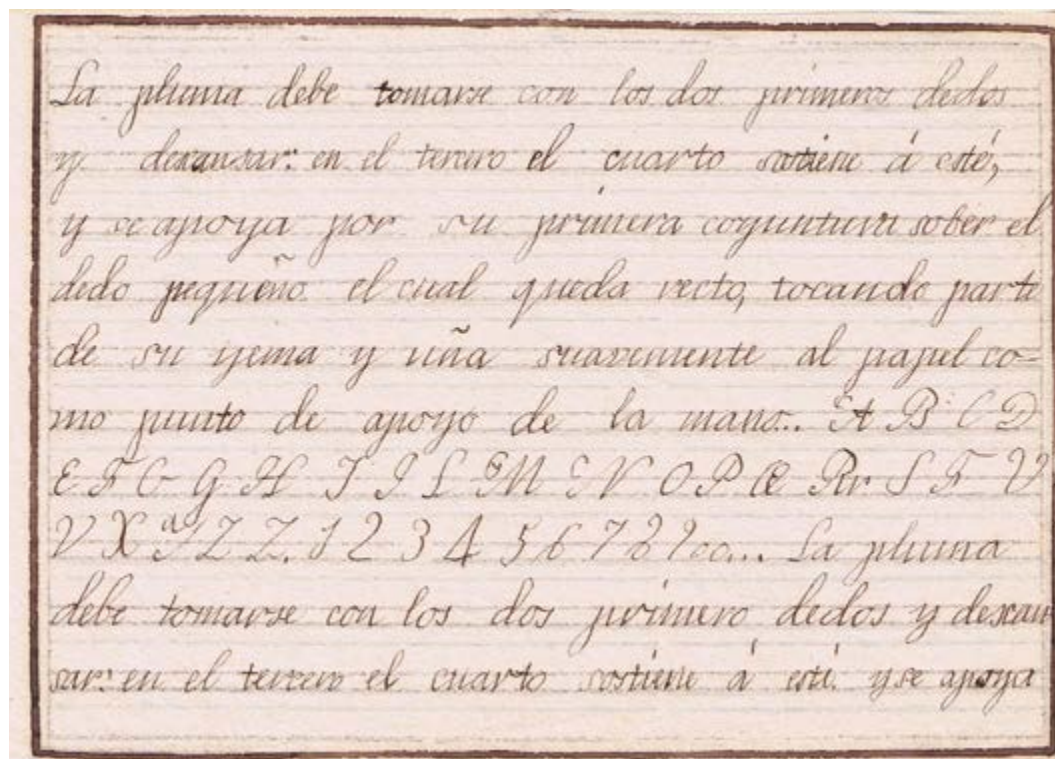 La pluma debe tomarse con los dos primeros dedos
y descansar: en el tercero el cuarto sostiene á esté,
y se apoya por su primera coyuntura sober el
dedo pequeño el cual queda recto, tocando parte
de su yema y uña suavemente al papel co=
mo punto de apoyo de la mano.. A B C D
E F G G H I J L M N O P Q Rr S T U
V X Y Z Z. 1 2 3 4 5 6 7 8 9 00... La pluma
debe tomarse con los dos primero dedos y descan
sar: en el tercero el cuarto sostiene á esté. y se apoya